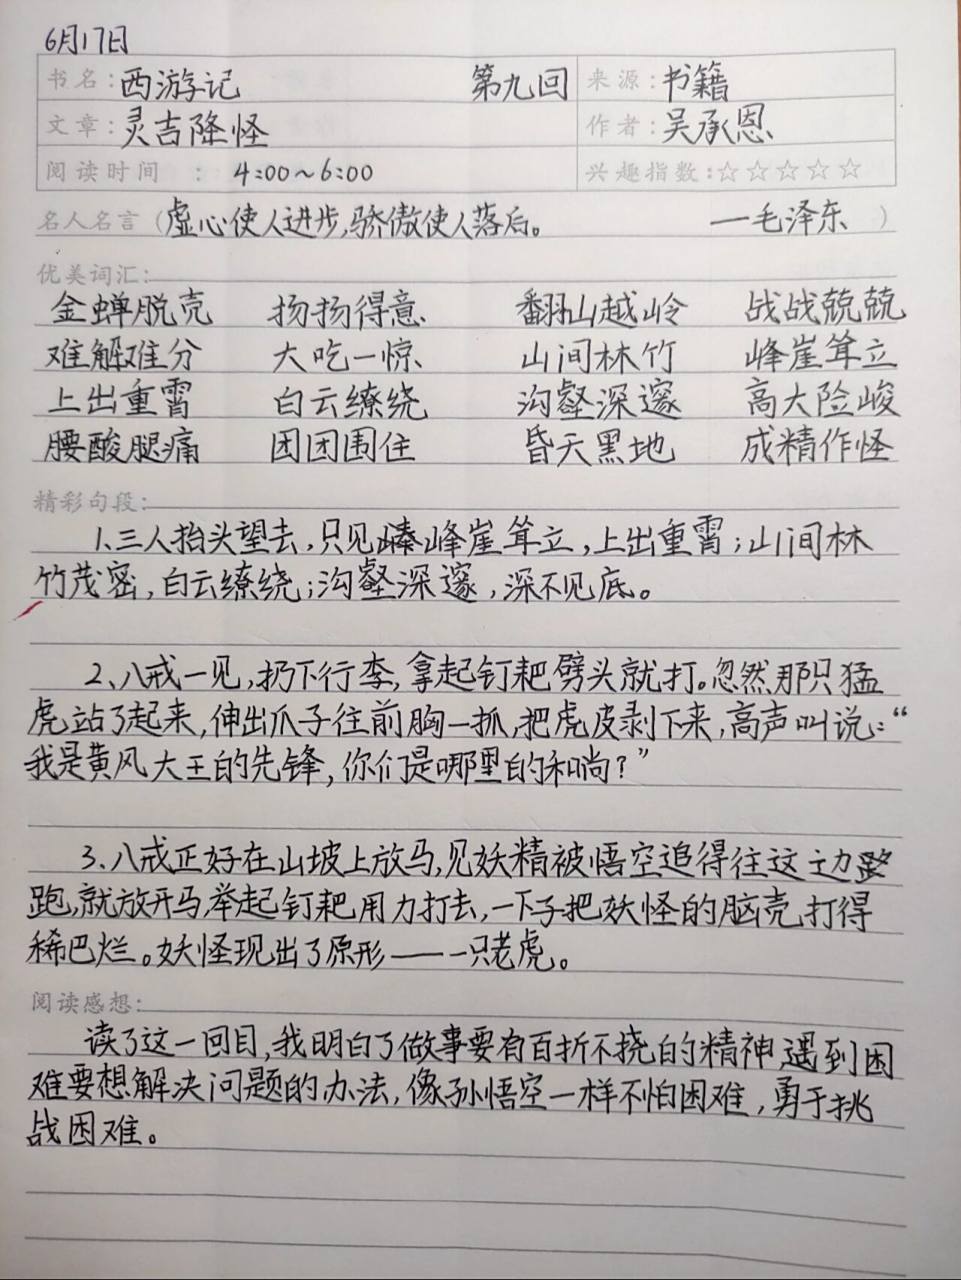 6月17日
书名：西游记 第九回 来源：书籍
文章：灵吉降怪 作者：吴承恩
阅读时间：4:00~6:00 兴趣指数：☆☆☆☆☆
名人名言（虚心使人进步，骄傲使人落后。 ——毛泽东）
优美词汇：
金蝉脱壳 扬扬得意 翻山越岭 战战兢兢
难解难分 大吃一惊 山间林竹 峰崖耸立
上出重霄 白云缭绕 沟壑深邃 高大险峻
腰酸腿痛 团团围住 昏天黑地 成精作怪
精彩句段：
1、三人抬头望去，只见峰崖耸立，上出重霄；山间林
竹茂密，白云缭绕；沟壑深邃，深不见底。
2、八戒一见，扔下行李，拿起钉耙劈头就打。忽然那只猛
虎站了起来，伸出爪子往前胸一抓，把虎皮剥下来，高声叫说：“
我是黄风大王的先锋，你们是哪里的和尚？”
3、八戒正好在山坡上放马，见妖精被悟空追得往这边
跑，就放开马，举起钉耙用力打去，一下子把妖怪的脑壳打得
稀巴烂。妖怪现出了原形——一只老虎。
阅读感想：
读了这一回目，我明白了做事要有百折不挠的精神，遇到困
难要想解决问题的办法，像孙悟空一样不怕困难，勇于挑
战困难。